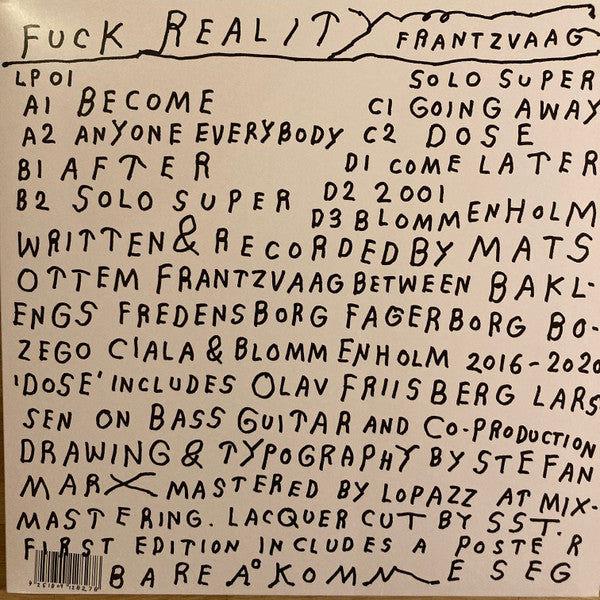 FUCK REALITY FRANTZVAAG
LP01 SOLO SUPER
A1 BECOME C1 GOING AWAY
A2 ANYONE EVERYBODY C2 DOSE
B1 AFTER D1 COME LATER
B2 SOLO SUPER D2 2001
D3 BLOMMENHOLM
WRITTEN & RECORDED BY MATS
OTTEM FRANTZVAAG BETWEEN BAKL-
ENGS FREDENSBORG FAGERBORG BO-
ZEGO CIALA & BLOMMENHOLM 2016-2020
'DOSE' INCLUDES OLAV FRIISBERG LARS
SEN ON BASS GUITAR AND CO-PRODUCTION
DRAWING & TYPOGRAPHY BY STEFAN
MARX MASTERED BY LOPAZZ AT MIX-
MASTERING. LACQUER CUT BY SST.
FIRST EDITION INCLUDES A POSTER
BARE Å KOMME SEG